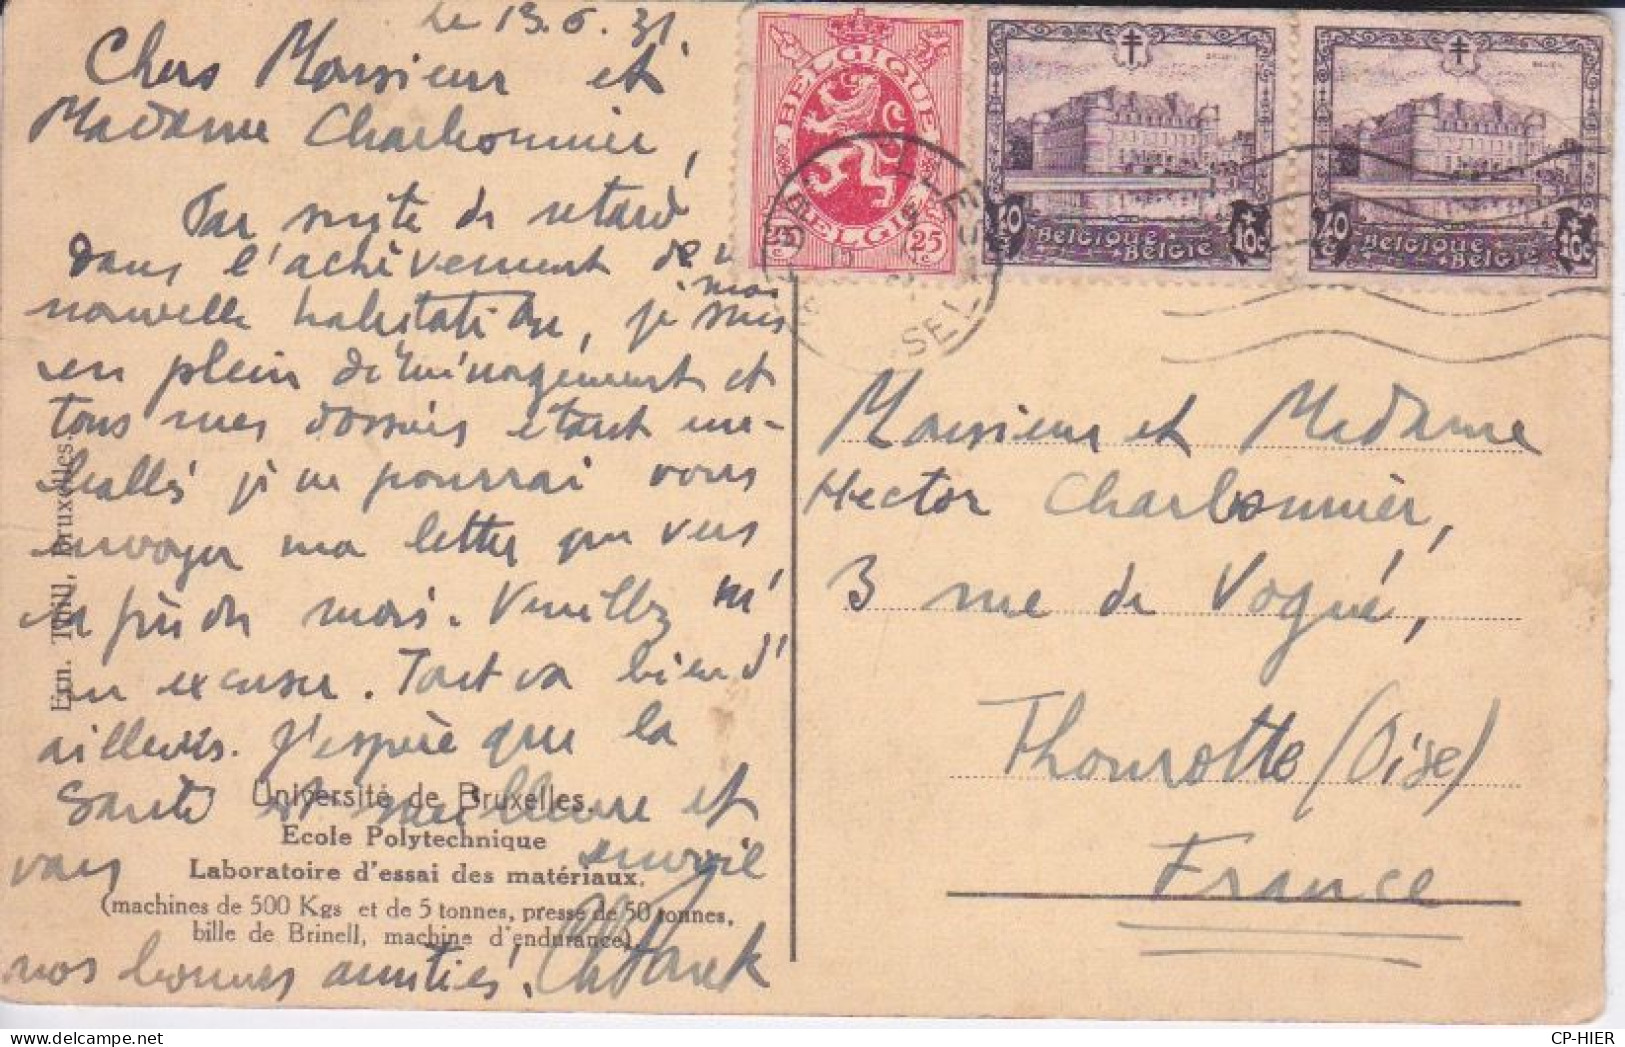 Le 13.6.31.
Chers Monsieur et
Madame Charbonnier,
Par suite de retard
dans l'achèvement de ma
nouvelle habitation, je suis
en plein déménagement et
tous mes dossiers étant em-
ballés je ne pourrai vous
envoyer ma lettre que vers
la fin du mois. Veuillez m'
en excuser. Tout va bien d'
ailleurs. J'espère que la
santé est meilleure et
vous envoie
nos bonnes amitiés.
Ern. Thill, Bruxelles.
Université de Bruxelles.
Ecole Polytechnique
Laboratoire d'essai des matériaux.
(machines de 500 Kgs et de 5 tonnes, presse de 50 tonnes,
bille de Brinell, machine d'endurance).
BELGIQUE
BELGIË
25c 25c
40c BELGIQUE + BELGIË + 10c
40c BELGIQUE + BELGIË + 10c
Monsieur et Madame
Hector Charbonnier,
3 rue de Vogué,
Thourotte (Oise)
France
CP-HIER